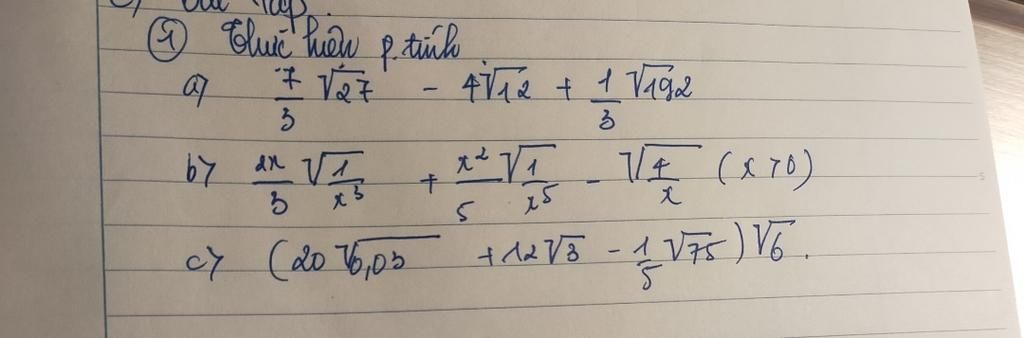 ① Thực hiện p.tính
a) 7/3 √27 - 4√12 + 1/3 √192
b) 2x/3 √(1/x³) + x²/5 √(1/x⁵) - √(4/x) (x > 0)
c) (20 √0,03 + 12√3 - 1/5 √75)√6.